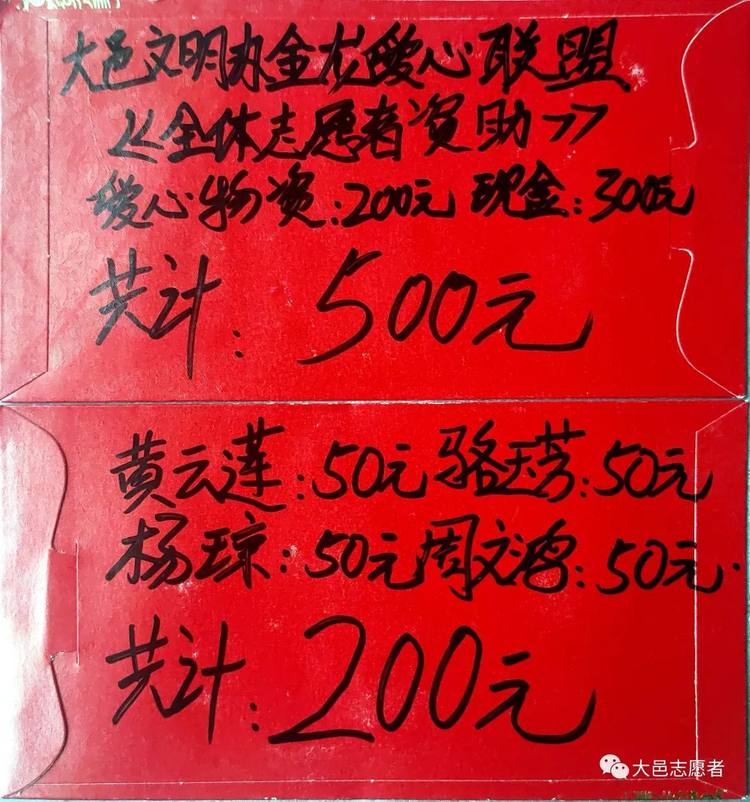 大邑文明办金龙爱心联盟
《全体志愿者资助》
爱心物资:200元 现金:300元
共计:500元
黄云莲:50元 骆玉芳:50元
杨琼:50元 周文鸿:50元.
共计:200元
大邑志愿者